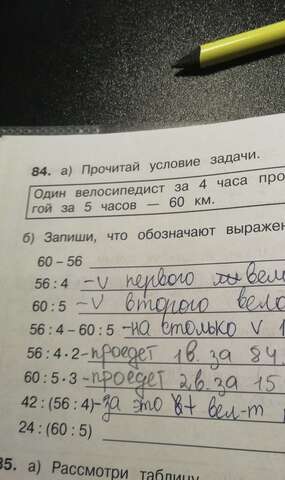 84. а) Прочитай условие задачи.
Один велосипедист за 4 часа про
гой за 5 часов — 60 км.
б) Запиши, что обозначают выражен
60 – 56
56 : 4 – V первого вел
60 : 5 – V второго вело
56 : 4 – 60 : 5 – на столько V 1
56 : 4 · 2 – проедет 1в. за 8ч.
60 : 5 · 3 – проедет 2в. за 15
42 : (56 : 4) – за это вел-т
24 : (60 : 5)
85. а) Рассмотри таблицу